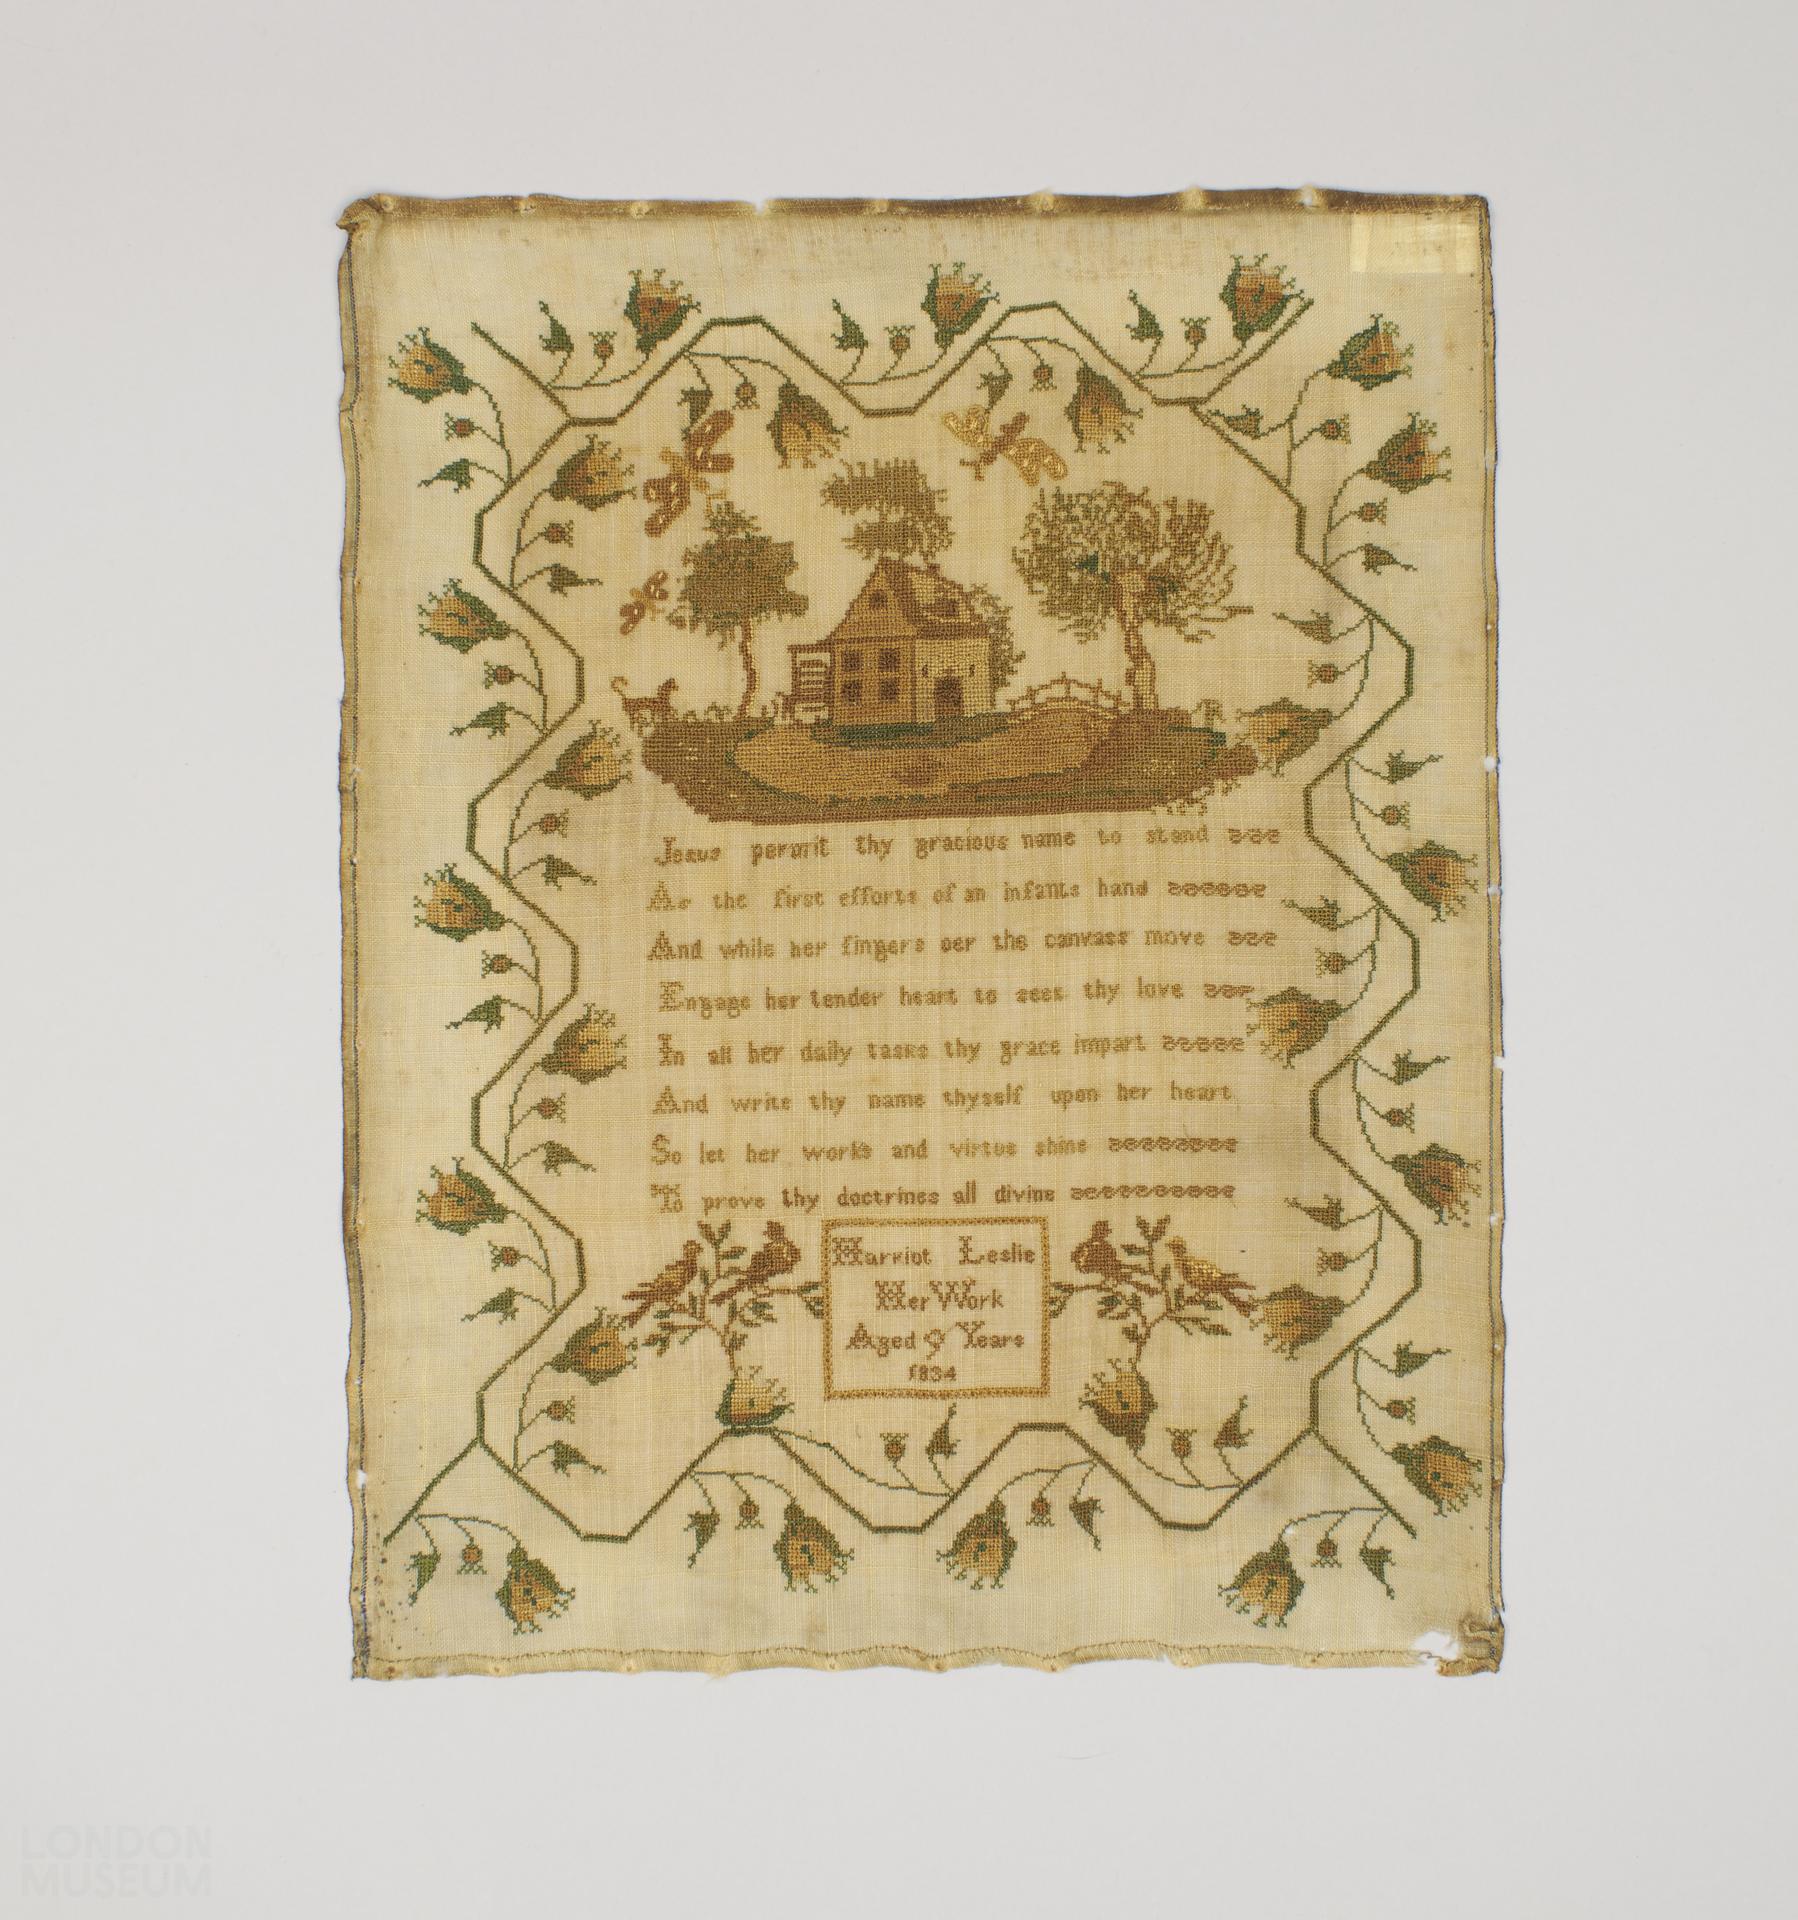 Jesus permit thy gracious name to stand
As the first efforts of an infants hand
And while her fingers oer the canvass move
Engage her tender heart to seek thy love
In all her daily tasks thy grace impart
And write thy name thyself upon her heart
So let her works and virtue shine
To prove thy doctrines all divine
Harriot Leslie
Her Work
Aged 9 Years
1834
LONDON
MUSEUM